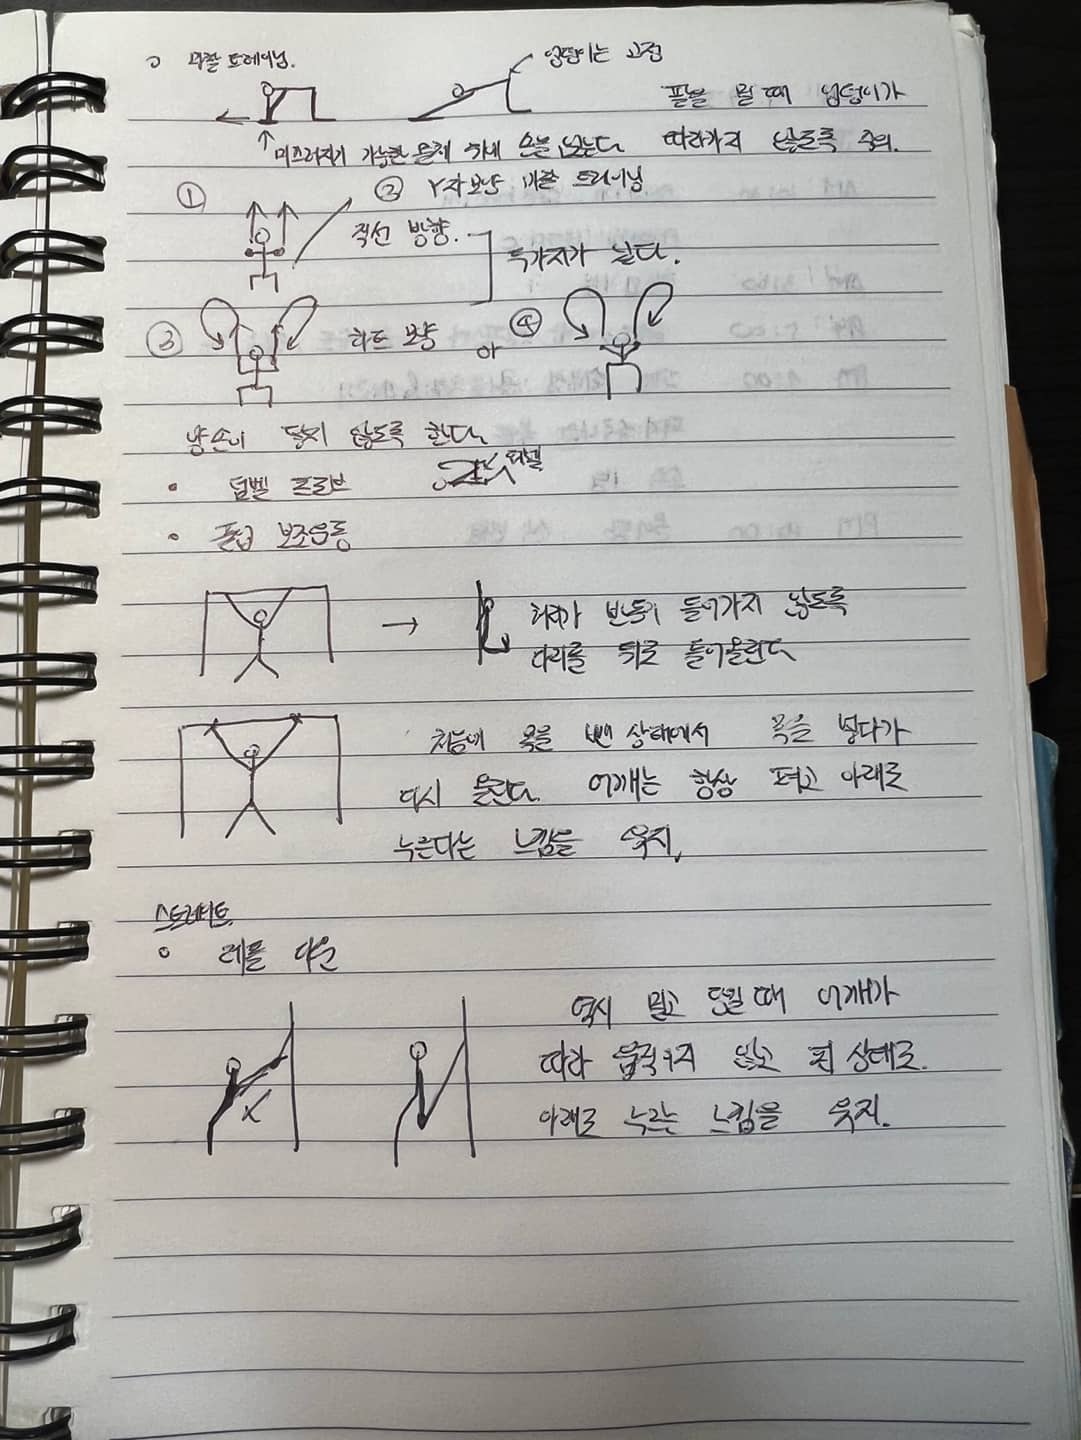 마찰 트레이닝.
엉덩이는 고정
팔을 밀 때 엉덩이가
미끄러지기 가능한 물체 위에 손을 넣는다. 따라가지 않도록 주의.
① ② Y자모양 마찰 트레이닝
직선 방향.
두가지가 있다.
③ 하트 모양 or ④
양손이 닿지 않도록 한다.
• 덤벨 프레브
덤벨
• 풀업 보조운동
허리가 반동이 들어가지 않도록
다리를 뒤로 들어올린다
처음에 목을 뺀 상태에서 목을 넣다가
다시 올린다. 어깨는 항상 펴고 아래로
누른다는 느낌을 유지.
스트레이트
레플 다운
역시 밀고 당길 때 어깨가
따라 움직이지 않고 펴 상태로.
아래로 누르는 느낌을 유지.